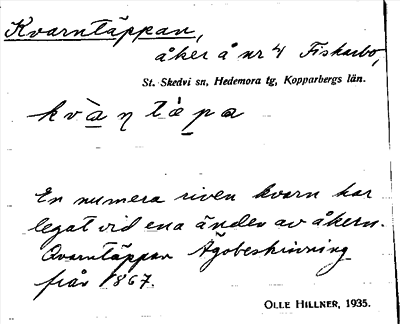 Kvarntäppan,
åker å nr 4 Fiskarbo,
St. Skedvi sn, Hedemora tg, Kopparbergs län.
kvàn tèpa
En numera riven kvarn har
legat vid ena änden av åkern.
Qvarntäppan Ägobeskrivning
från 1867.
OLLE HILLNER, 1935.